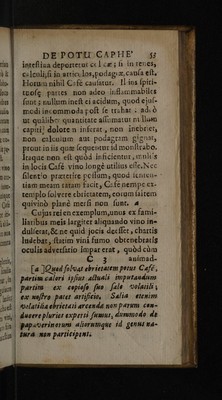 DE POTU CAPHE
intestina deportetur colicæ; si in renes,
calculi; si in articulos, podagræ, causa est.
Horum nihil Cafè causatur. Illius spiri-
tuosæ partes non adeo inflammabiles
sunt; nullum inest ei acidum, quod ejus-
modi incommoda post se trahat: adeò
ut quâlibet quantitate assumatur nullum
capiti dolorem inferat, non inebriet,
non calculum aut podagram gignat,
prout in iis quæ sequentur id monstrabo.
Itaque non est quòd inficientur, multis
in locis Café vino longè utilius esse. Nec
silentio præterire possum, quod senten-
tiam meam ratam facit, Café nempe ex-
templo solvere ebrietatem, eorum saltem
quivinò planè mersi non sunt. a
Cujus rei en exemplum, unus ex fami-
liaribus meis largiter aliquando vino in-
dulserat, & ne quid jocis deesset, chartis
ludebat, statim vini fumo obtenebratis
oculis adversario impar erat, quòd cùm
C 3 animad-
[a ]Quod solvat ebrietatem potus Café,
partim calori ipsius actuali imputandum
partim ex copioso suo sale volatili;
ex nostro patet artificio. Salia etenim
volatilia ebrietati arcenda non parum con-
ducere pluries experti sumus, dummodo de
papaverinorum aliorumque id genus na-
tura non participent.